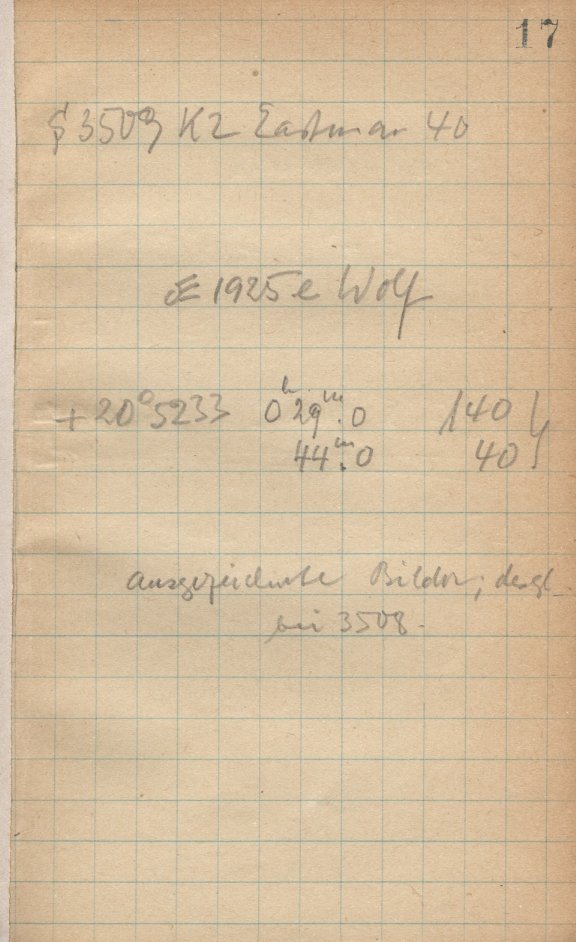 17
§ 3509 K2 Eastman 40
Œ 1925 e Wolf
+20°5233 0ʰ29ᵐ.0 140
44ᵐ.0 40
ausgezeichnete Bilder; desgl.
bei 3508.